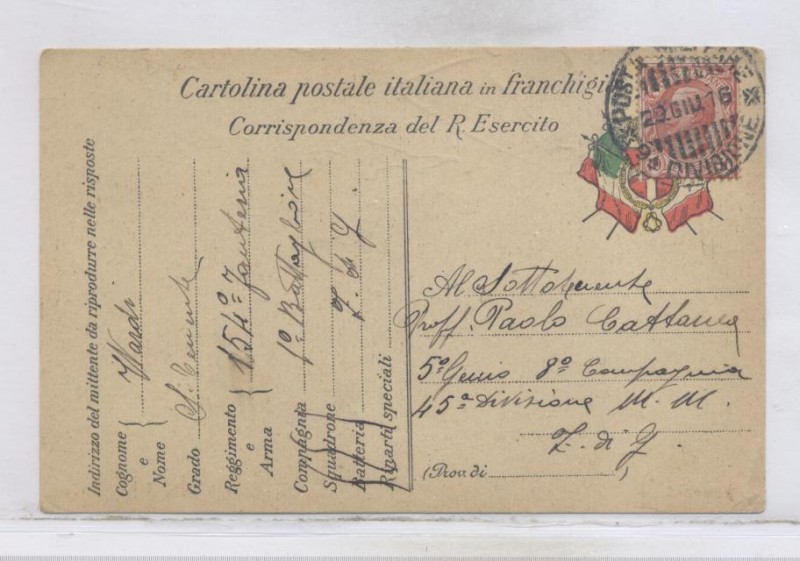 Cartolina postale italiana in franchigi
Corrispondenza del R. Esercito
POSTA
29.GIU.16
DIVISIONE
Indirizzo del mittente da riprodurre nelle risposte
Cognome e Nome
Grado S. Tenente
Reggimento e Arma 154º Fanteria
Compagnia 1º Battaglione
Squadrone
Batteria
Riparti speciali
Al Sottotenente
Proff. Paolo Cattanea
5º Genio 8º Compagnia
45ª Divisione M. M.
Z. di G.
(Prov. di )